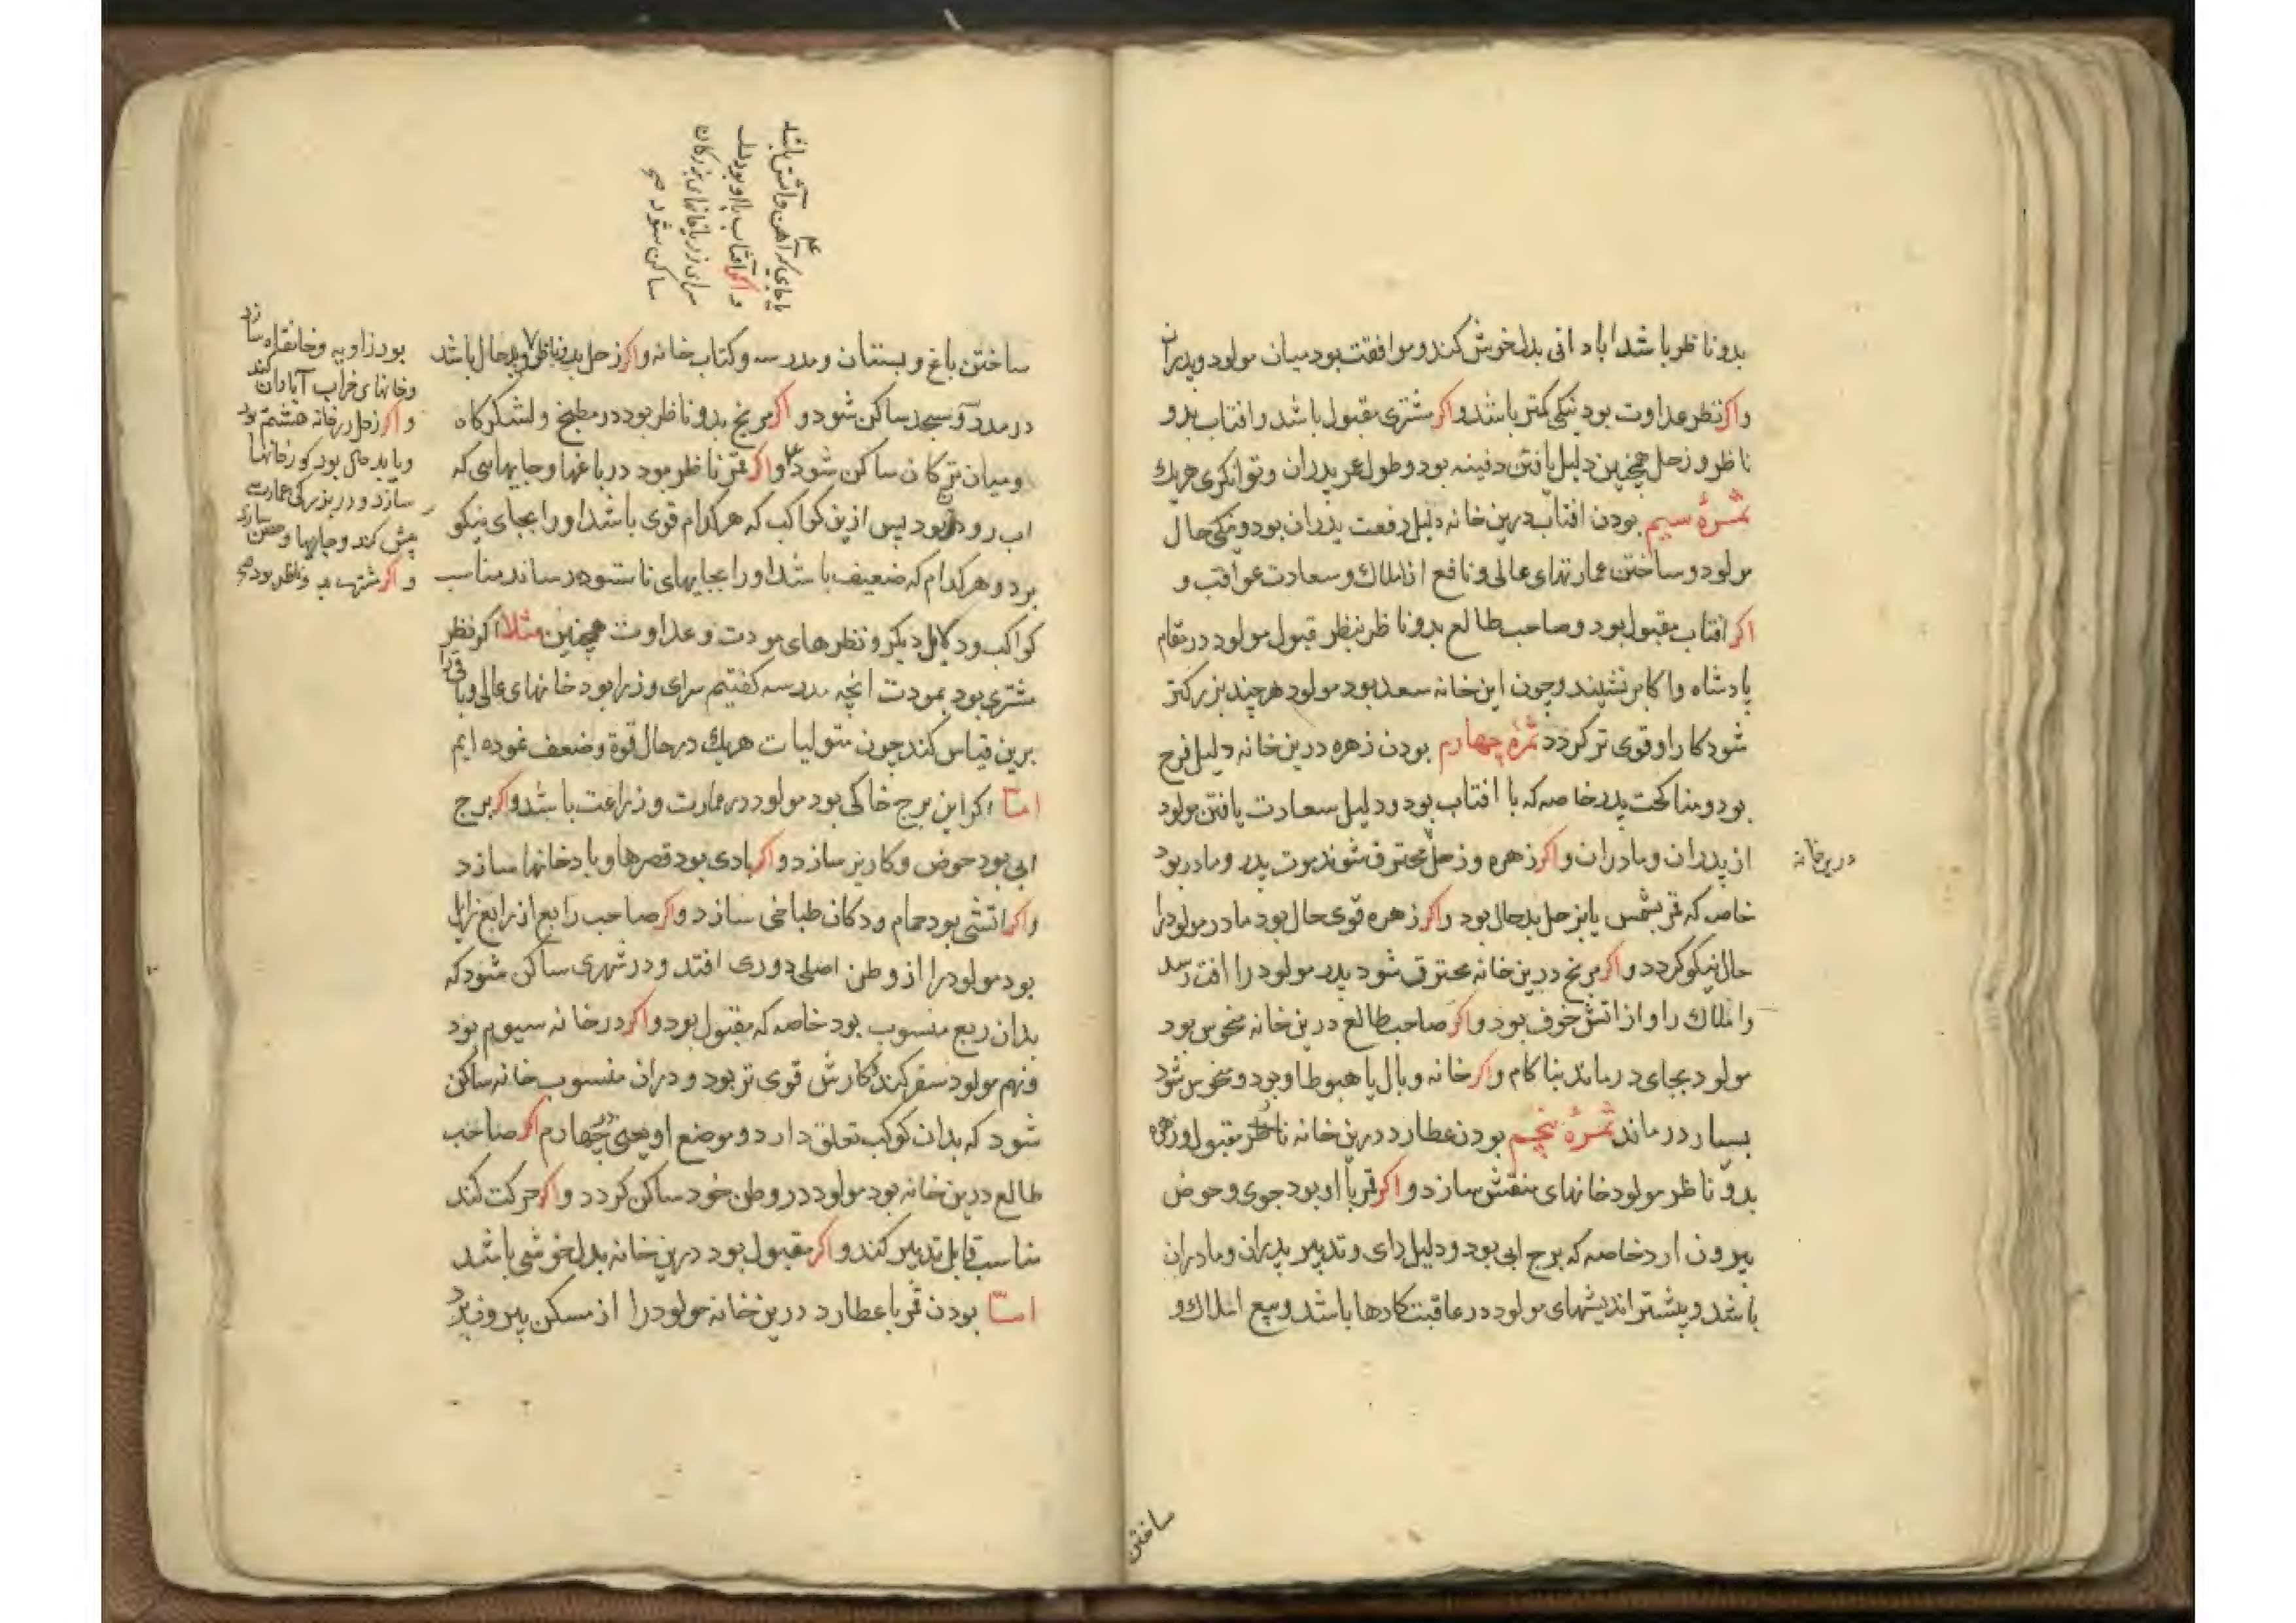 بدو ناظر باشد ابادانی بدل خوش کند و موافقت بود میان مولود و پدران
و اکر نظر عداوت بود نیکی کمتر باشد و اکر مشتری مقبول باشد و افتاب بدو
ناظر و زحل همچنین دلیل یافتن دفینه بود و طول عمر پدران و توانکری هریک
ثمرۀ سیم بودن افتاب درین خانه دلیل رفعت پدران بود و نیکی حال
مولود و ساختن عمارتهای عالی و نافع از املاک و سعادت عواقب و
اکر افتاب مقبول بود و صاحب طالع بدو ناظر بنظر قبول مولود در مقام
پادشاه و اکابر نشیند و چون این خانه سعد بود مولود هر چند بزرکتر
شود کار او قوی تر کردد ثمرۀ چهارم بودن زهره درین خانه دلیل فرح
بود و مناکحت پدر خاصه که با افتاب بود و دلیل سعادت یافتن مولود
از پدران و مادران و اکر زهره و زحل محترق شوند موت پدر و مادر بود
درین خانه
خاصه که قمر بشمس یا بزحل بدحال بود و اکر زهره قوی حال بود مادر مولود را
حال نیکو کردد و اکر مریخ درین خانه محترق شود پدر مولود را افت رسد
و املاک را و از اتش خوف بود و اکر صاحب طالع درین خانه منحوس بود
مولود بجای درماند بناکام و اکر خانه وبال یا هبوط او بود و منحوس شود
بسیار درماند ثمرۀ پنجم بودن عطارد درین خانه مقبول و زهره
بدو ناظر مولود خانهای منقش سازد و اکر قمر با او بود جوی و حوض
بیرون ارد خاصه که برج ابی بود و دلیل رای و تدبیر پدران و مادران
باشد و بیشتر اندیشهای مولود در عاقبت کارها باشد و بیع املاک و
ساختن
یا جای که آهن و آتش باشد
و اکر آفتاب با او بود
سرای زر یا خانهای بزرکان
ساکن شود صح
ساختن باغ و بستان و مدرسه و کتاب خانه و اکر زحل بدو ناظر و بدحال باشد
در مدرسه و مسجد ساکن شود و اکر مریخ بدو ناظر بود در مطبخ و لشکرکاه
و میان ترکان ساکن شود و اکر قمر ناظر بود در باغها و جایهایی که
اب روان بود پس ازین کواکب که هر کدام قوی باشد او را بجای نیکو
برد و هر کدام که ضعیف باشد او را بجایهای ناستوده رساند مناسب
کواکب و دلایل دیکر و نظرهای مودت و عداوت همچنین مثلا اکر نظر
مشتری بود بمودت انچه مدرسه کفتیم سرای وزرا بود خانهای عالی و باقی را
برین قیاس کند چون متولیات هریک در حال قوة و ضعف نموده ایم
امّا اکر این برج خاکی بود مولود در عمارت و زراعت باشد و اکر برج
ابی بود حوض و کاریز سازد و اکر بادی بود قصرها و بادخانها سازد
و اکر اتشی بود حمام و دکان طباخی سازد و اکر صاحب رابع از رابع زایل
بود مولود را از وطن اصلی دوری افتد و در شهری ساکن شود که
بدان ربع منسوب بود خاصه که مقبول بود و اکر در خانه سیوم بود
و نهم مولود سفر کند کارش قوی تر بود و دران منسوب خانه ساکن
شود که بدان کوکب تعلق دارد و موضع او یعنی چهارم اکر صاحب
طالع درین خانه بود مولود در وطن خود ساکن کردد و اکر حرکت کند
مناسب قابل تدبیر کند و اکر مقبول بود درین خانه بدل خوشی باشد
امّا بودن قمر با عطارد درین خانه مولود را از مسکن بیرون برد
بود زاویه و خانقاه سازد
و خانهای خراب آبادان کند
و اکر زحل در خانه هشتم بود
و یا بد حال بود کورخانها
سازد و در بزرکی عمارت
پیش کند و چاهها و حصن سازد
و اکر مشتری بدو ناظر بود صح